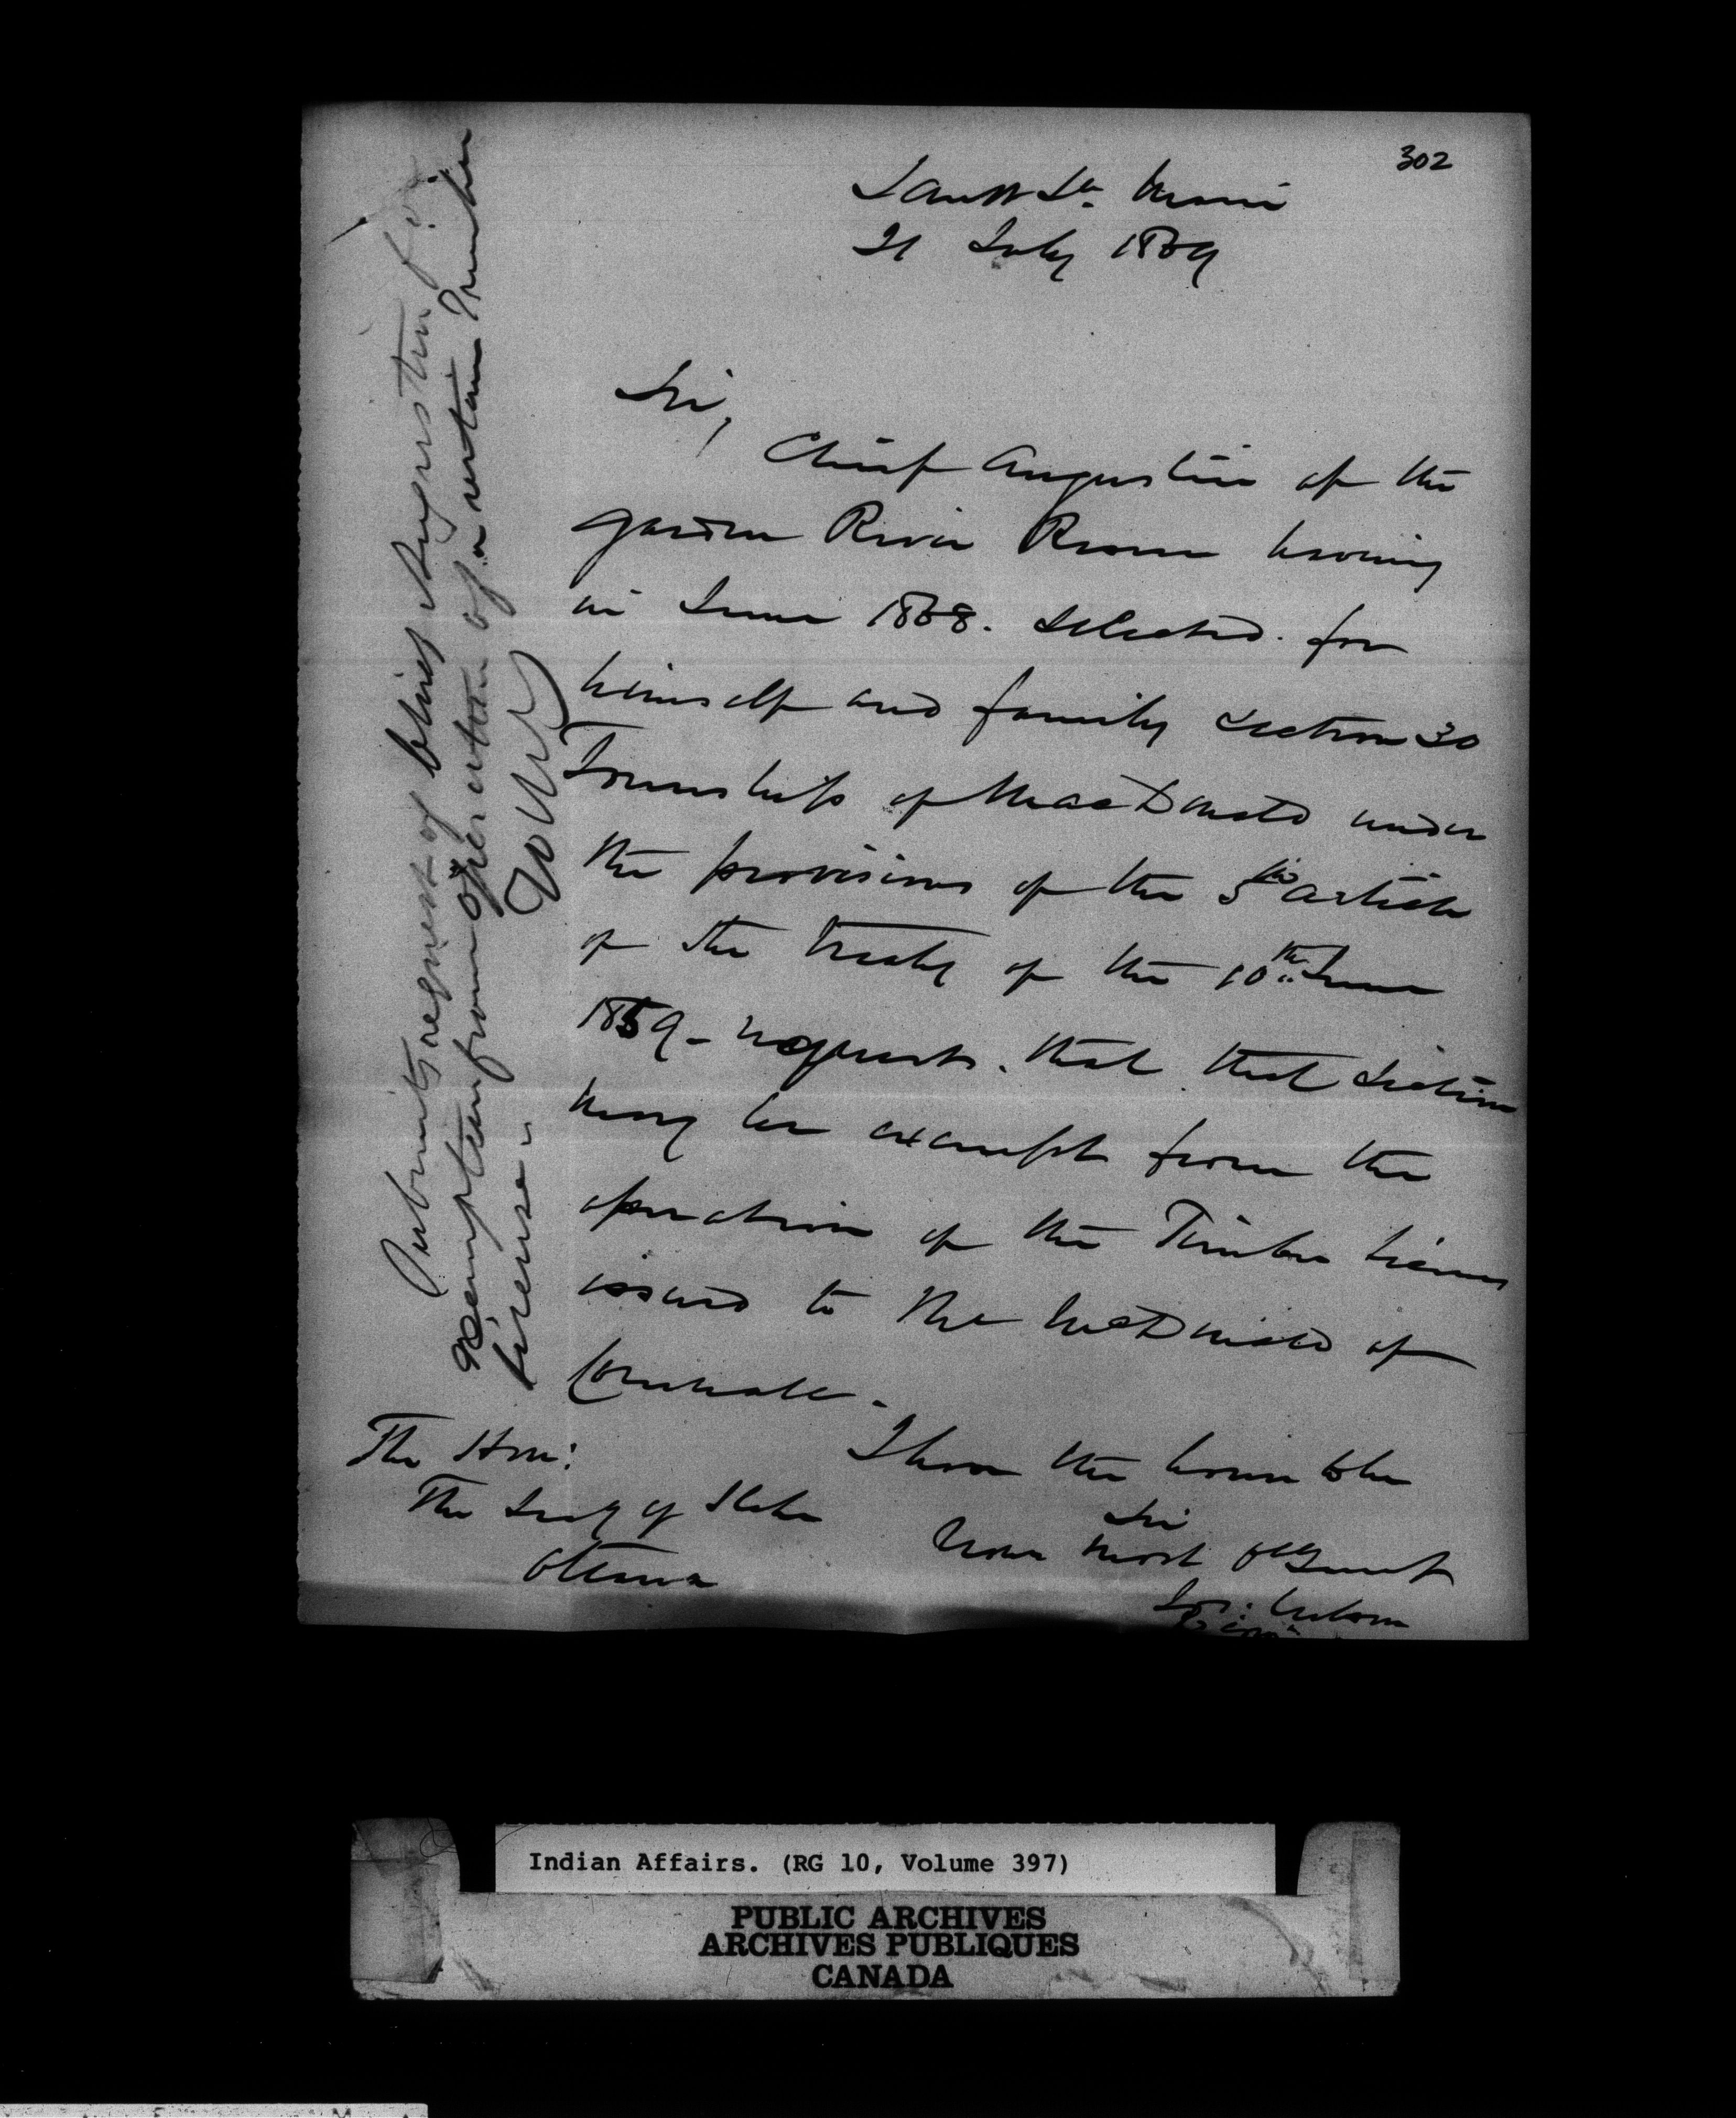 302
Sault Ste. Marie
21 July 1869
Sir,
Chief Augustin of the
Garden River Reserve having
in June 1868. selected for
himself and family Section 30
Township of MacDonald under
the provisions of the 5th article
of the treaty of the 10th June
1859 - requests. that that Section
may be exempt from the
operation of the Timber License
issued to Mr McDonald of
Cornwall.
I have the honor to be
Sir
Your most Obt Servt
The Hon:
The Secy of State
Ottawa
Submits request of Chief Augustin for
exemption from operation of a certain Timber
license.
Indian Affairs. (RG 10, Volume 397)
PUBLIC ARCHIVES
ARCHIVES PUBLIQUES
CANADA